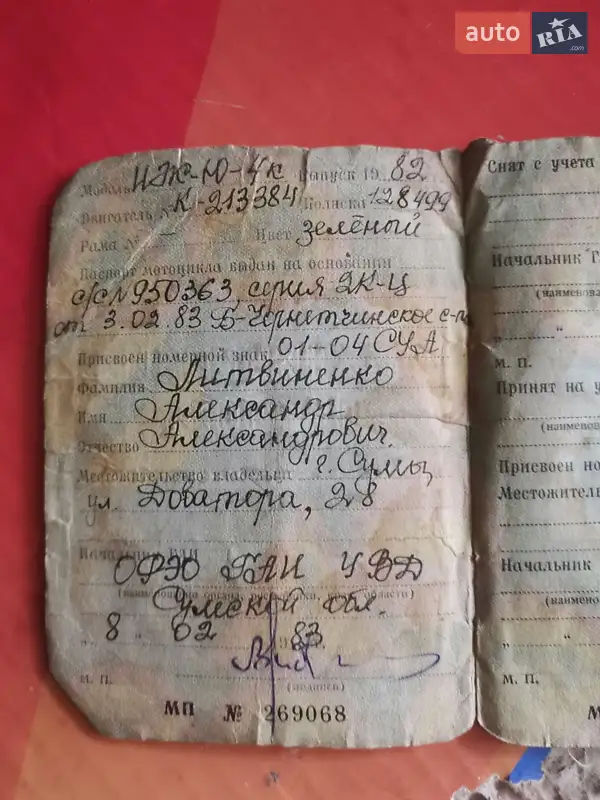 auto RIA .com
Модель ИЖ-Ю-4к Выпуск 19 82
Двигатель № К-213384 Коляска 128499
Рама № Цвет зелёный
Паспорт мотоцикла выдан на основании
с/с №950363, серия ДК-Ц
от 3.02.83 Б-Чернетчинское с-по
Присвоен номерной знак 01-04 СУА
Фамилия Литвиненко
Имя Александр
Отчество Александрович.
Местожительство владельца г. Сумы,
ул. Доватора, 28
Начальник ГАИ
ОФЭО ГАИ УВД
Сумской обл.
„ 8 " 02 19 83
М. П. (подпись)
МП № 269068
Снят с учета
Начальник Г
(наименова
„ "
М. П.
Принят на у
(наименов
Присвоен но
Местожитель
Начальник
(наимено
„ "
М. П.
М